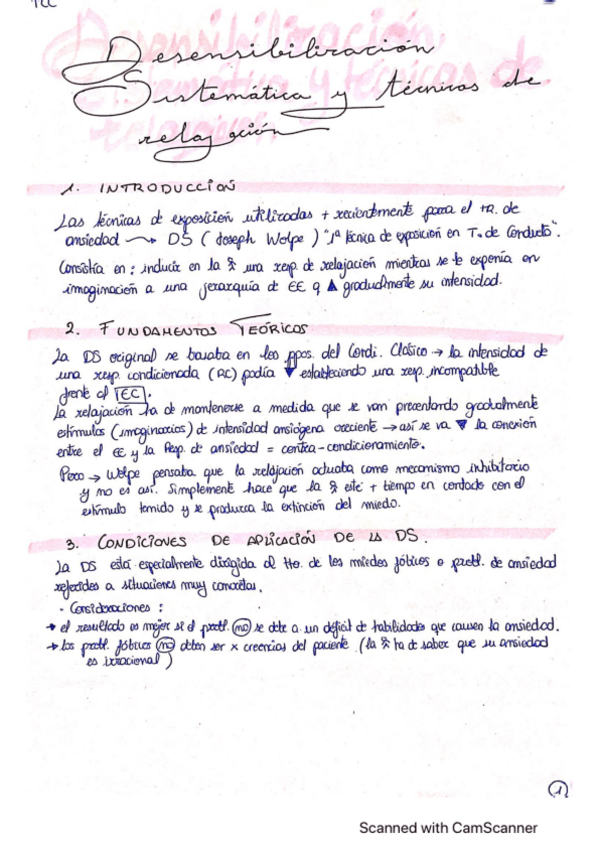 TCC
Desensibilización
Sistemática y técnicas de
relajación
1. INTRODUCCIÓN
Las técnicas de exposición utilizadas + recientemente para el tr. de
ansiedad ⟿ DS (Joseph Wolpe) "1ª técnica de exposición en T. de Conducta".
Consistía en: inducir en la una resp. de relajación mientras se le exponía en
imaginación a una jerarquía de EE q ▲ gradualmente su intensidad.
2. FUNDAMENTOS TEÓRICOS
La DS original se basaba en los ppos. del Condi. Clásico → la intensidad de
una resp. condicionada (RC) podía ▼ estableciendo una resp. incompatible
frente al EC.
La relajación ha de mantenerse a medida que se van presentando gradualmente
estímulos (imaginarios) de intensidad ansiógena creciente → así se va ▼ la conexión
entre el EC y la Resp. de ansiedad = contra-condicionamiento.
Pero → Wolpe pensaba que la relajación actuaba como mecanismo inhibitorio
y no es así. Simplemente hace que la esté + tiempo en contacto con el
estímulo temido y se produzca la extinción del miedo.
3. CONDICIONES DE APLICACIÓN DE LA DS.
La DS está especialmente dirigida al tto. de los miedos fóbicos o probl. de ansiedad
referidos a situaciones muy concretas.
· Consideraciones:
→ el resultado es mejor si el probl. no se debe a un déficit de habilidades que causen la ansiedad.
→ los probl. fóbicos no deben ser x creencias del paciente (la ha de saber que su ansiedad
es irracional)
1
Scanned with CamScanner